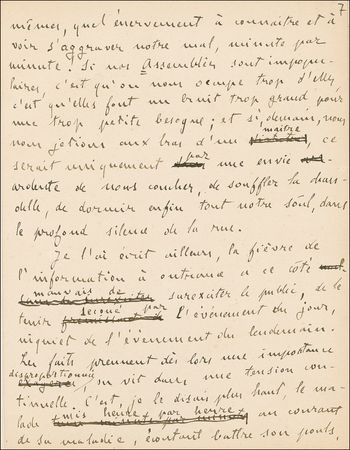 7
mêmes, quel énervement à connaître et à
voir s'aggraver notre mal, minute par
minute. Si nos Assemblées sont impopu-
laires, c'est qu'on nous occupe trop d'elles,
c'est qu'elles font un bruit trop grand pour
une trop petite besogne; et si, demain, nous
maître
nous jetions aux bras d'un ce
par
serait uniquement une envie
ardente de nous coucher, de souffler la chan-
delle, de dormir enfin tout notre soul, dans
le profond silence de la rue.
Je l'ai écrit ailleurs, la fièvre de
l'information à outrance a ce côté
mauvais de
surexciter le public, de le
secoué par
tenir l'événement du jour,
inquiet de l'événement du lendemain.
Les faits prennent dès lors une importance
disproportionnée
on vit dans une tension con-
tinuelle. C'est, je le disais plus haut, le ma-
mis heure par heure
lade au courant
de sa maladie, écoutant battre son pouls,